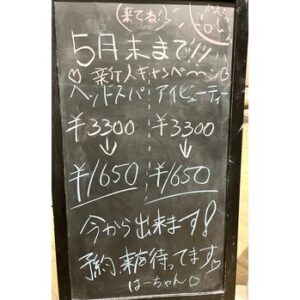 来てね!
5月末まで!!!
♡新人キャンペーン♡
ヘッドスパ アイビューティー
¥3300 ¥3300
↓ ↓
¥1650 ¥1650
今から出来ます!
予約来店待ってます♡
はーちゃん♡